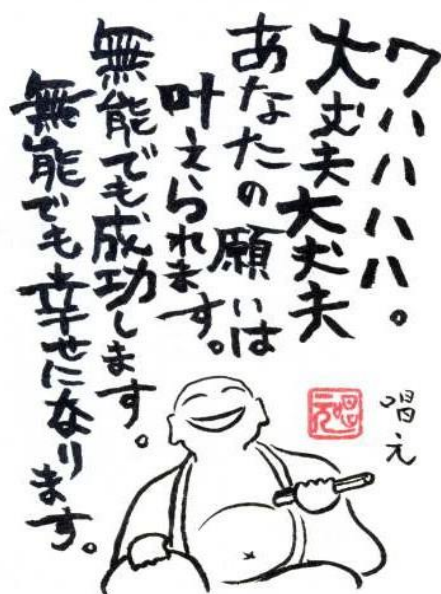 ワハハハハ。
大丈夫大丈夫
あなたの願いは
叶えられます。
無能でも成功します。
無能でも幸せになります。
唱元
唱元